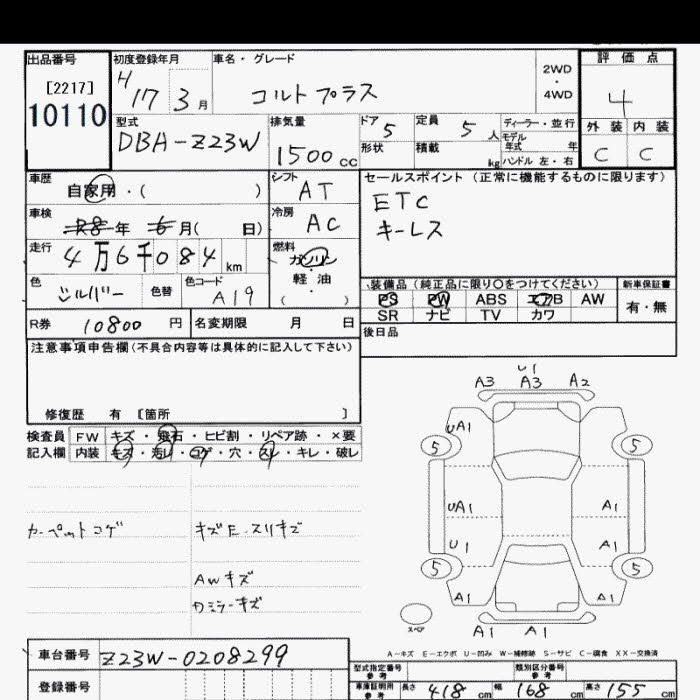 出品番号
[2217]
10110
初度登録年月
H 17 3月
車名・グレード
コルトプラス
2WD
・
4WD
評価点
4
外装 内装
C C
型式
DBA-Z23W
排気量
1500cc
ドア 5
形状
定員 5人
積載 kg
ディーラー・並行
モデル
年式 年
ハンドル 左・右
車歴
自家用・( )
シフト
AT
車検
R8年 6月( 日)
冷房
AC
走行
4万6千084km
燃料
ガソリン
・
軽油
( )
色
シルバー
色替
色コード
A19
R券 10800円
名変期限 月 日
セールスポイント(正常に機能するものに限ります)
ETC
キーレス
装備品(純正品に限り○をつけてください)
PS PW ABS エアB AW
SR ナビ TV カワ
新車保証書
有・無
後日品
注意事項申告欄(不具合内容等は具体的に記入して下さい)
修復歴 有 [箇所 ]
検査員
記入欄
FW キズ・飛石・ヒビ割・リペア跡・×要
内装 キズ・汚レ・コゲ・穴・スレ・キレ・破レ
カーペットコゲ
キズE.スリキズ
AWキズ
カミラーキズ
U1
A3 A3 A2
UA1
5 5
UA1 A1
U1 A1
5 5
A1 A1
スペア
A1 A1
A-キズ E-エクボ U-凹み W-補修跡 S-サビ C-腐食 XX-交換済
車台番号 Z23W-0208299
登録番号
型式指定番号
参考
類別区分番号
参考
車庫証明用
参考
長さ 418cm 幅 168cm 高さ 155cm